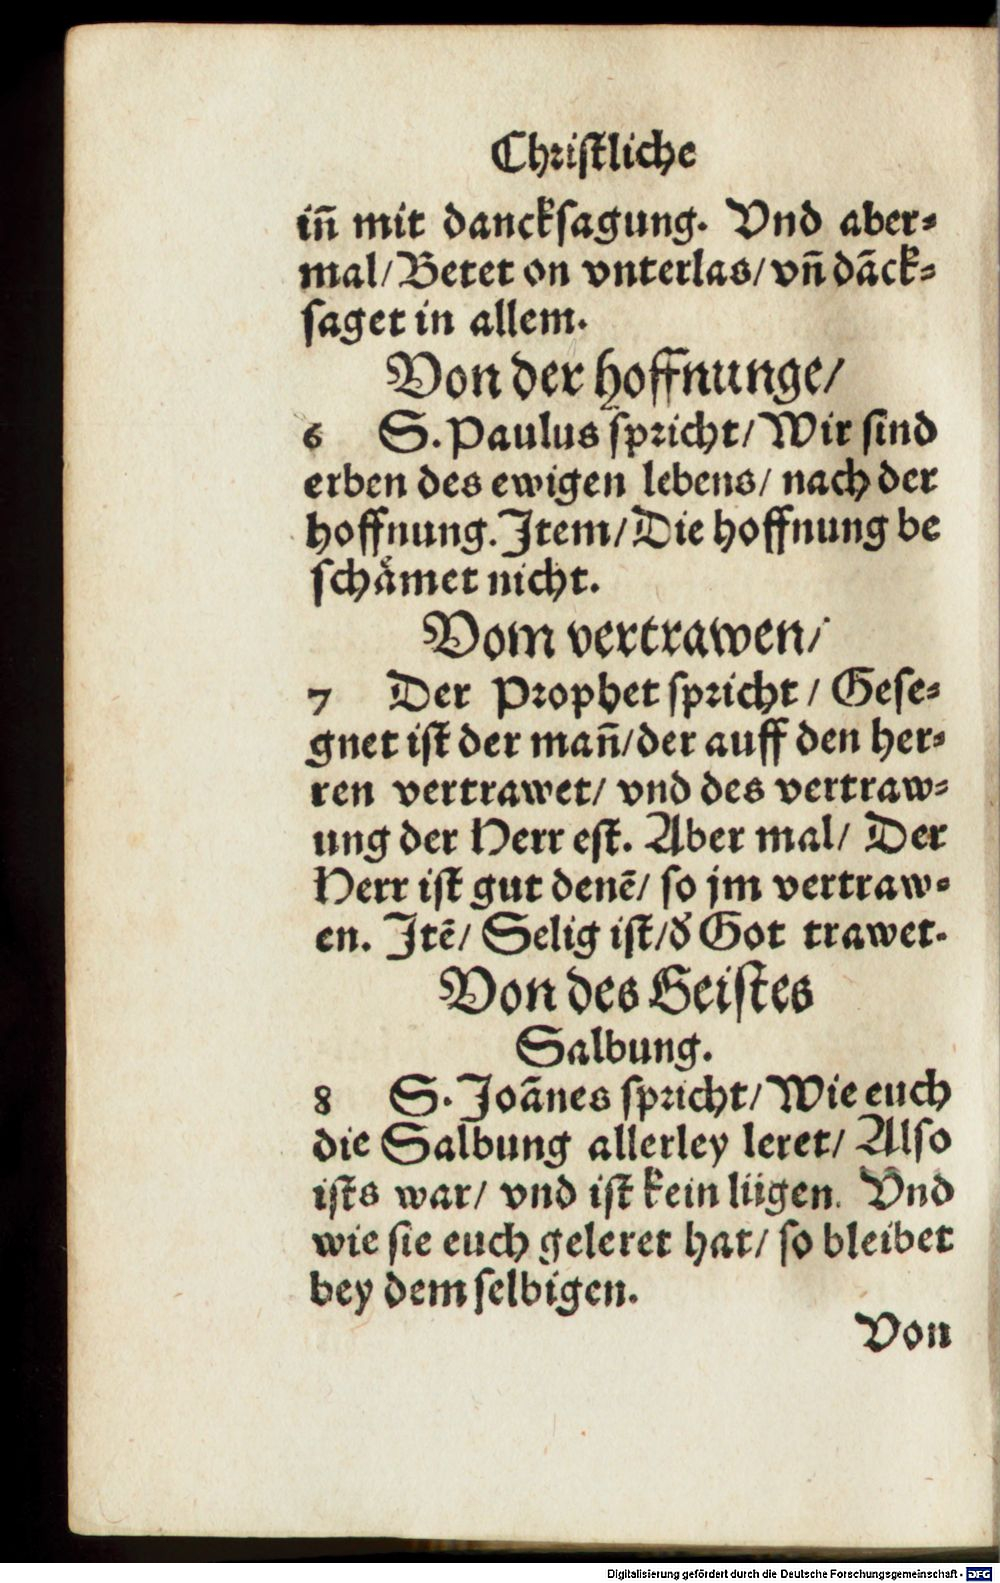 Christliche
in̄ mit dancksagung. Vnd aber-
mal/ Betet on vnterlas/ vn̄ dāck-
saget in allem.
Von der hoffnunge/
6 S. Paulus spricht/ Wir sind
erben des ewigen lebens/ nach der
hoffnung. Item/ Die hoffnung be
schaͤmet nicht.
Vom vertrawen/
7 Der Prophet spricht/ Gese-
gnet ist der man̄/ der auff den her-
ren vertrawet/ vnd des vertraw-
ung der Herr est. Aber mal/ Der
Herr ist gut denē/ so jm vertraw-
en. Itē/ Selig ist/ d̕ Got trawet.
Von des Geistes
Salbung.
8 S. Joānes spricht/ Wie euch
die Salbung allerley leret/ Also
ists war/ vnd ist kein lügen. Vnd
wie sie euch geleret hat/ so bleibet
bey dem selbigen.
Von
Digitalisierung gefördert durch die Deutsche Forschungsgemeinschaft - DFG